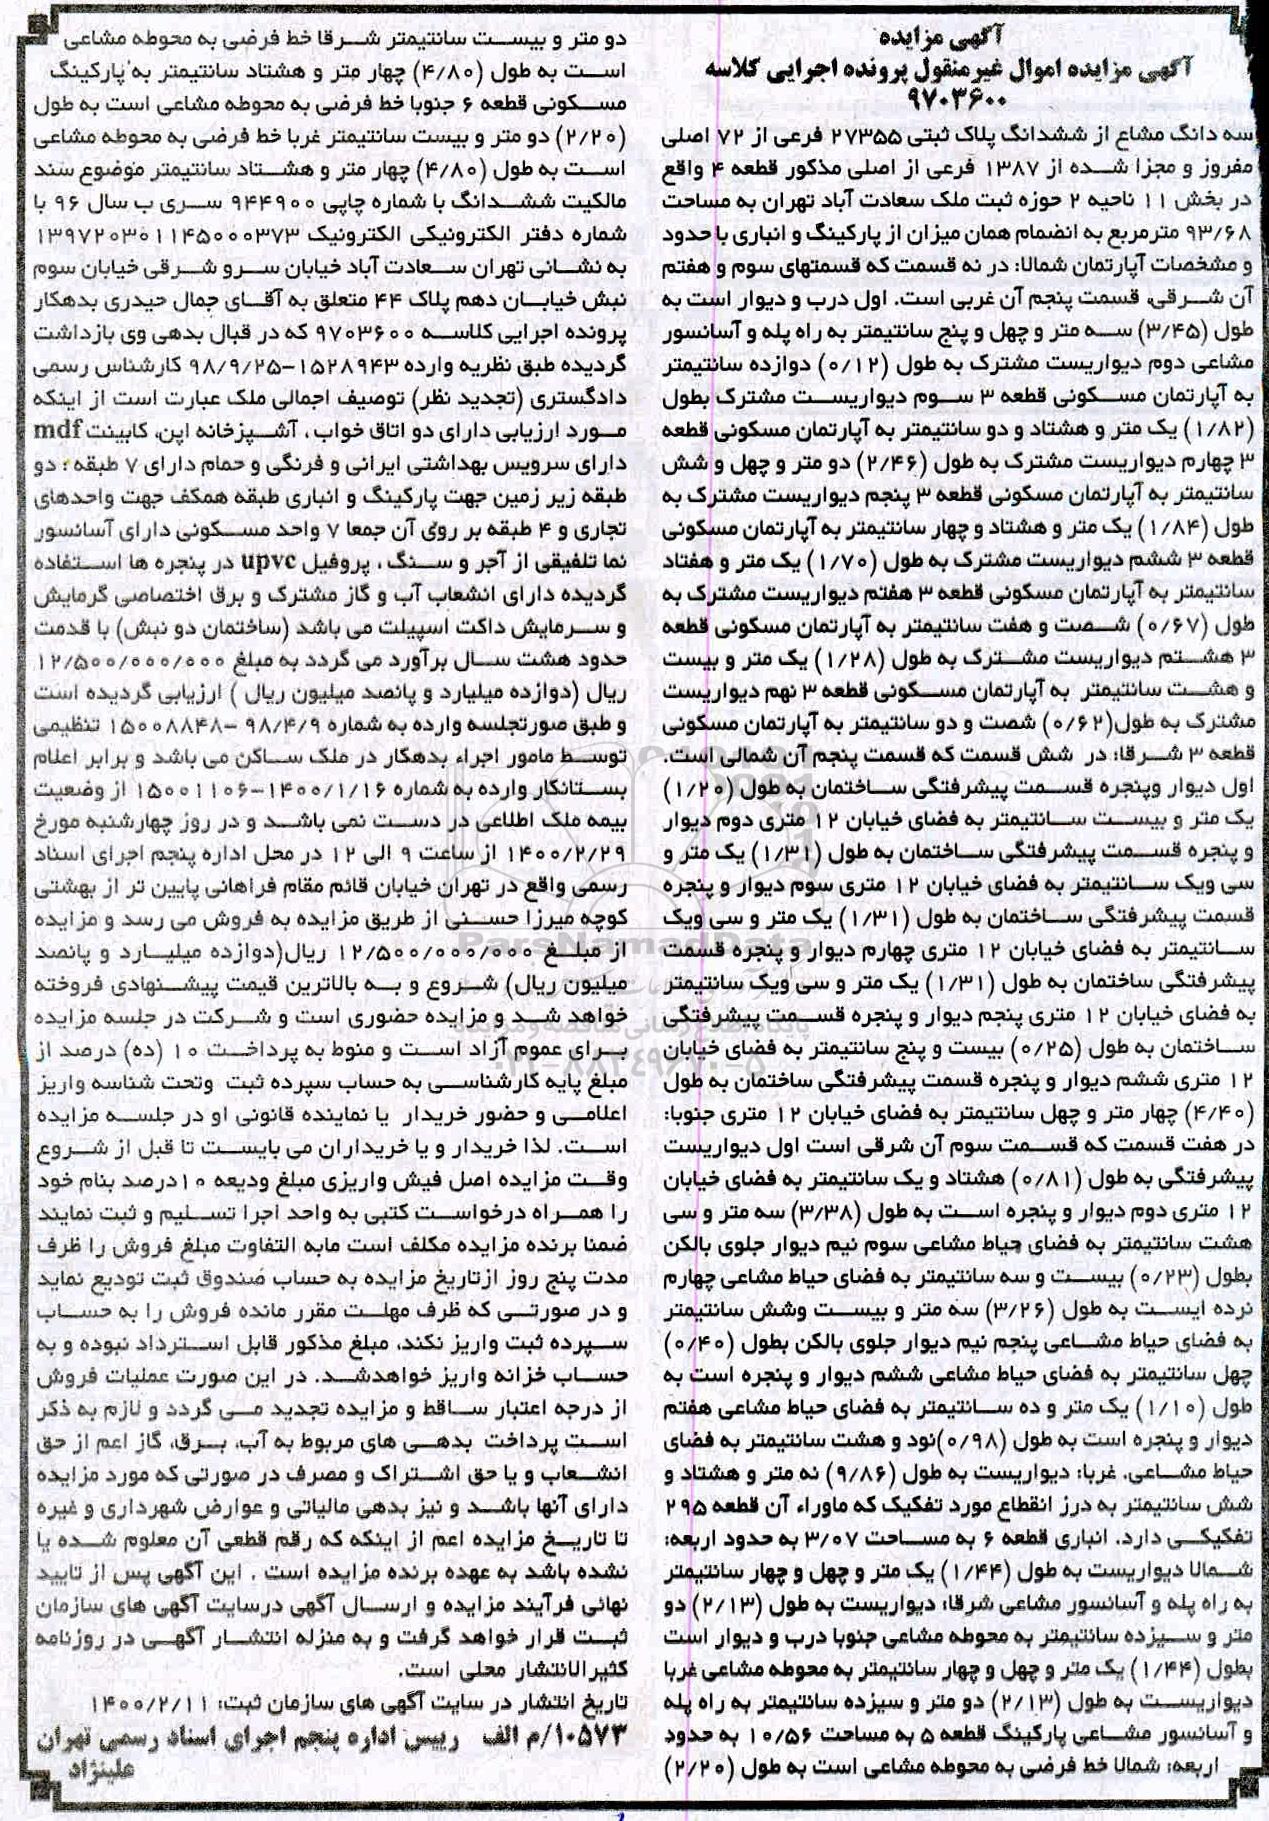 آگهی مزایده
آگهی مزایده اموال غیرمنقول پرونده اجرایی کلاسه
۹۷۰۳۶۰۰
سه دانگ مشاع از ششدانگ پلاک ثبتی ۲۷۳۵۵ فرعی از ۷۲ اصلی
مفروز و مجزا شده از ۱۳۸۷ فرعی از اصلی مذکور قطعه ۴ واقع
در بخش ۱۱ ناحیه ۲ حوزه ثبت ملک سعادت آباد تهران به مساحت
۹۳/۶۸ مترمربع به انضمام همان میزان از پارکینگ و انباری با حدود
و مشخصات آپارتمان شمالا: در نه قسمت که قسمتهای سوم و هفتم
آن شرقی، قسمت پنجم آن غربی است. اول درب و دیوار است به
طول (۳/۴۵) سه متر و چهل و پنج سانتیمتر به راه پله و آسانسور
مشاعی دوم دیواریست مشترک به طول (۰/۱۲) دوازده سانتیمتر
به آپارتمان مسکونی قطعه ۳ سوم دیواریست مشترک بطول
(۱/۸۲) یک متر و هشتاد و دو سانتیمتر به آپارتمان مسکونی قطعه
۳ چهارم دیواریست مشترک به طول (۲/۴۶) دو متر و چهل و شش
سانتیمتر به آپارتمان مسکونی قطعه ۳ پنجم دیواریست مشترک به
طول (۱/۸۴) یک متر و هشتاد و چهار سانتیمتر به آپارتمان مسکونی
قطعه ۳ ششم دیواریست مشترک به طول (۱/۷۰) یک متر و هفتاد
سانتیمتر به آپارتمان مسکونی قطعه ۳ هفتم دیواریست مشترک به
طول (۰/۶۷) شصت و هفت سانتیمتر به آپارتمان مسکونی قطعه
۳ هشتم دیواریست مشترک به طول (۱/۲۸) یک متر و بیست
و هشت سانتیمتر به آپارتمان مسکونی قطعه ۳ نهم دیواریست
مشترک به طول(۰/۶۲) شصت و دو سانتیمتر به آپارتمان مسکونی
قطعه ۳ شرقا: در شش قسمت که قسمت پنجم آن شمالی است.
اول دیوار وپنجره قسمت پیشرفتگی ساختمان به طول (۱/۲۰)
یک متر و بیست سانتیمتر به فضای خیابان ۱۲ متری دوم دیوار
و پنجره قسمت پیشرفتگی ساختمان به طول (۱/۳۱) یک متر و
سی ویک سانتیمتر به فضای خیابان ۱۲ متری سوم دیوار و پنجره
قسمت پیشرفتگی ساختمان به طول (۱/۳۱) یک متر و سی ویک
سانتیمتر به فضای خیابان ۱۲ متری چهارم دیوار و پنجره قسمت
پیشرفتگی ساختمان به طول (۱/۳۱) یک متر و سی ویک سانتیمتر
به فضای خیابان ۱۲ متری پنجم دیوار و پنجره قسمت پیشرفتگی
ساختمان به طول (۰/۲۵) بیست و پنج سانتیمتر به فضای خیابان
۱۲ متری ششم دیوار و پنجره قسمت پیشرفتگی ساختمان به طول
(۴/۴۰) چهار متر و چهل سانتیمتر به فضای خیابان ۱۲ متری جنوبا:
در هفت قسمت که قسمت سوم آن شرقی است اول دیواریست
پیشرفتگی به طول (۰/۸۱) هشتاد و یک سانتیمتر به فضای خیابان
۱۲ متری دوم دیوار و پنجره است به طول (۳/۳۸) سه متر و سی
هشت سانتیمتر به فضای حیاط مشاعی سوم نیم دیوار جلوی بالکن
بطول (۰/۲۳) بیست و سه سانتیمتر به فضای حیاط مشاعی چهارم
نرده ایست به طول (۳/۲۶) سه متر و بیست وشش سانتیمتر
به فضای حیاط مشاعی پنجم نیم دیوار جلوی بالکن بطول (۰/۴۰)
چهل سانتیمتر به فضای حیاط مشاعی ششم دیوار و پنجره است به
طول (۱/۱۰) یک متر و ده سانتیمتر به فضای حیاط مشاعی هفتم
دیوار و پنجره است به طول (۰/۹۸)نود و هشت سانتیمتر به فضای
حیاط مشاعی. غربا: دیواریست به طول (۹/۸۶) نه متر و هشتاد و
شش سانتیمتر به درز انقطاع مورد تفکیک که ماوراء آن قطعه ۲۹۵
تفکیکی دارد. انباری قطعه ۶ به مساحت ۳/۰۷ به حدود اربعه:
شمالا دیواریست به طول (۱/۴۴) یک متر و چهل و چهار سانتیمتر
به راه پله و آسانسور مشاعی شرقا: دیواریست به طول (۲/۱۳) دو
متر و سیزده سانتیمتر به محوطه مشاعی جنوبا درب و دیوار است
بطول (۱/۴۴) یک متر و چهل و چهار سانتیمتر به محوطه مشاعی غربا
دیواریست به طول (۲/۱۳) دو متر و سیزده سانتیمتر به راه پله
و آسانسور مشاعی پارکینگ قطعه ۵ به مساحت ۱۰/۵۶ به حدود
اربعه: شمالا خط فرضی به محوطه مشاعی است به طول (۲/۲۰)
دو متر و بیست سانتیمتر شرقا خط فرضی به محوطه مشاعی
است به طول (۴/۸۰) چهار متر و هشتاد سانتیمتر به پارکینگ
مسکونی قطعه ۶ جنوبا خط فرضی به محوطه مشاعی است به طول
(۲/۲۰) دو متر و بیست سانتیمتر غربا خط فرضی به محوطه مشاعی
است به طول (۴/۸۰) چهار متر و هشتاد سانتیمتر موضوع سند
مالکیت ششدانگ با شماره چاپی ۹۴۴۹۰۰ سری ب سال ۹۶ با
شماره دفتر الکترونیکی الکترونیک ۱۳۹۷۲۰۳۰۱۱۴۵۰۰۰۳۷۳
به نشانی تهران سعادت آباد خیابان سرو شرقی خیابان سوم
نبش خیابان دهم پلاک ۴۴ متعلق به آقای جمال حیدری بدهکار
پرونده اجرایی کلاسه ۹۷۰۳۶۰۰ که در قبال بدهی وی بازداشت
گردیده طبق نظریه وارده ۱۵۲۸۹۴۳-۹۸/۹/۲۵ کارشناس رسمی
دادگستری (تجدید نظر) توصیف اجمالی ملک عبارت است از اینکه
مورد ارزیابی دارای دو اتاق خواب، آشپزخانه اپن، کابینت mdf
دارای سرویس بهداشتی ایرانی و فرنگی و حمام دارای ۷ طبقه؛ دو
طبقه زیر زمین جهت پارکینگ و انباری طبقه همکف جهت واحدهای
تجاری و ۴ طبقه بر روی آن جمعا ۷ واحد مسکونی دارای آسانسور
نما تلفیقی از آجر و سنگ، پروفیل upvc در پنجره ها استفاده
گردیده دارای انشعاب آب و گاز مشترک و برق اختصاصی گرمایش
و سرمایش داکت اسپیلت می باشد (ساختمان دو نبش) با قدمت
حدود هشت سال برآورد می گردد به مبلغ ۱۲/۵۰۰/۰۰۰/۰۰۰
ریال (دوازده میلیارد و پانصد میلیون ریال ) ارزیابی گردیده است
و طبق صورتجلسه وارده به شماره ۹۸/۴/۹ -۱۵۰۰۸۸۴۸ تنظیمی
توسط مامور اجراء بدهکار در ملک ساکن می باشد و برابر اعلام
بستانکار وارده به شماره ۱۴۰۰/۱/۱۶-۱۵۰۰۱۱۰۶ از وضعیت
بیمه ملک اطلاعی در دست نمی باشد و در روز چهارشنبه مورخ
۱۴۰۰/۲/۲۹ از ساعت ۹ الی ۱۲ در محل اداره پنجم اجرای اسناد
رسمی واقع در تهران خیابان قائم مقام فراهانی پایین تر از بهشتی
کوچه میرزا حسنی از طریق مزایده به فروش می رسد و مزایده
از مبلغ ۱۲/۵۰۰/۰۰۰/۰۰۰ ریال(دوازده میلیارد و پانصد
میلیون ریال) شروع و به بالاترین قیمت پیشنهادی فروخته
خواهد شد و مزایده حضوری است و شرکت در جلسه مزایده
برای عموم آزاد است و منوط به پرداخت ۱۰ (ده) درصد از
مبلغ پایه کارشناسی به حساب سپرده ثبت وتحت شناسه واریز
اعلامی و حضور خریدار یا نماینده قانونی او در جلسه مزایده
است. لذا خریدار و یا خریداران می بایست تا قبل از شروع
وقت مزایده اصل فیش واریزی مبلغ ودیعه ۱۰درصد بنام خود
را همراه درخواست کتبی به واحد اجرا تسلیم و ثبت نمایند
ضمنا برنده مزایده مکلف است مابه التفاوت مبلغ فروش را ظرف
مدت پنج روز ازتاریخ مزایده به حساب صندوق ثبت تودیع نماید
و در صورتی که ظرف مهلت مقرر مانده فروش را به حساب
سپرده ثبت واریز نکند، مبلغ مذکور قابل استرداد نبوده و به
حساب خزانه واریز خواهدشد. در این صورت عملیات فروش
از درجه اعتبار ساقط و مزایده تجدید می گردد و لازم به ذکر
است پرداخت بدهی های مربوط به آب، برق، گاز اعم از حق
انشعاب و یا حق اشتراک و مصرف در صورتی که مورد مزایده
دارای آنها باشد و نیز بدهی مالیاتی و عوارض شهرداری و غیره
تا تاریخ مزایده اعم از اینکه که رقم قطعی آن معلوم شده یا
نشده باشد به عهده برنده مزایده است . این آگهی پس از تایید
نهائی فرآیند مزایده و ارسال آگهی درسایت آگهی های سازمان
ثبت قرار خواهد گرفت و به منزله انتشار آگهی در روزنامه
کثیرالانتشار محلی است.
تاریخ انتشار در سایت آگهی های سازمان ثبت: ۱۴۰۰/۲/۱۱
۱۰۵۷۳/م الف رییس اداره پنجم اجرای اسناد رسمی تهران
علینژاد
ParsNamadData
پایگاه اطلاع رسانی مناقصه و مزایده
۰۲۱-۸۸۳۴۹۶۷۰-۵